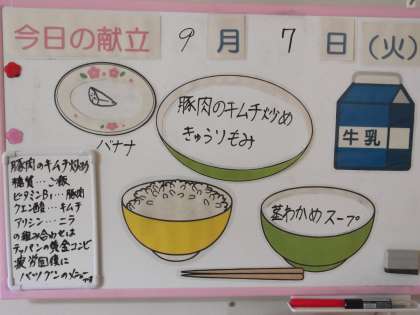 今日の献立 9月7日(火)
バナナ
豚肉のキムチ炒め
きゅうりもみ
牛乳
茎わかめスープ
豚肉のキムチ炒め
糖質…ご飯
ビタミンB₁…豚肉
クエン酸…キムチ
アリシン…ニラ
の組み合わせは
テッパンの黄金コンビ
疲労回復に
バツグンのメニューです